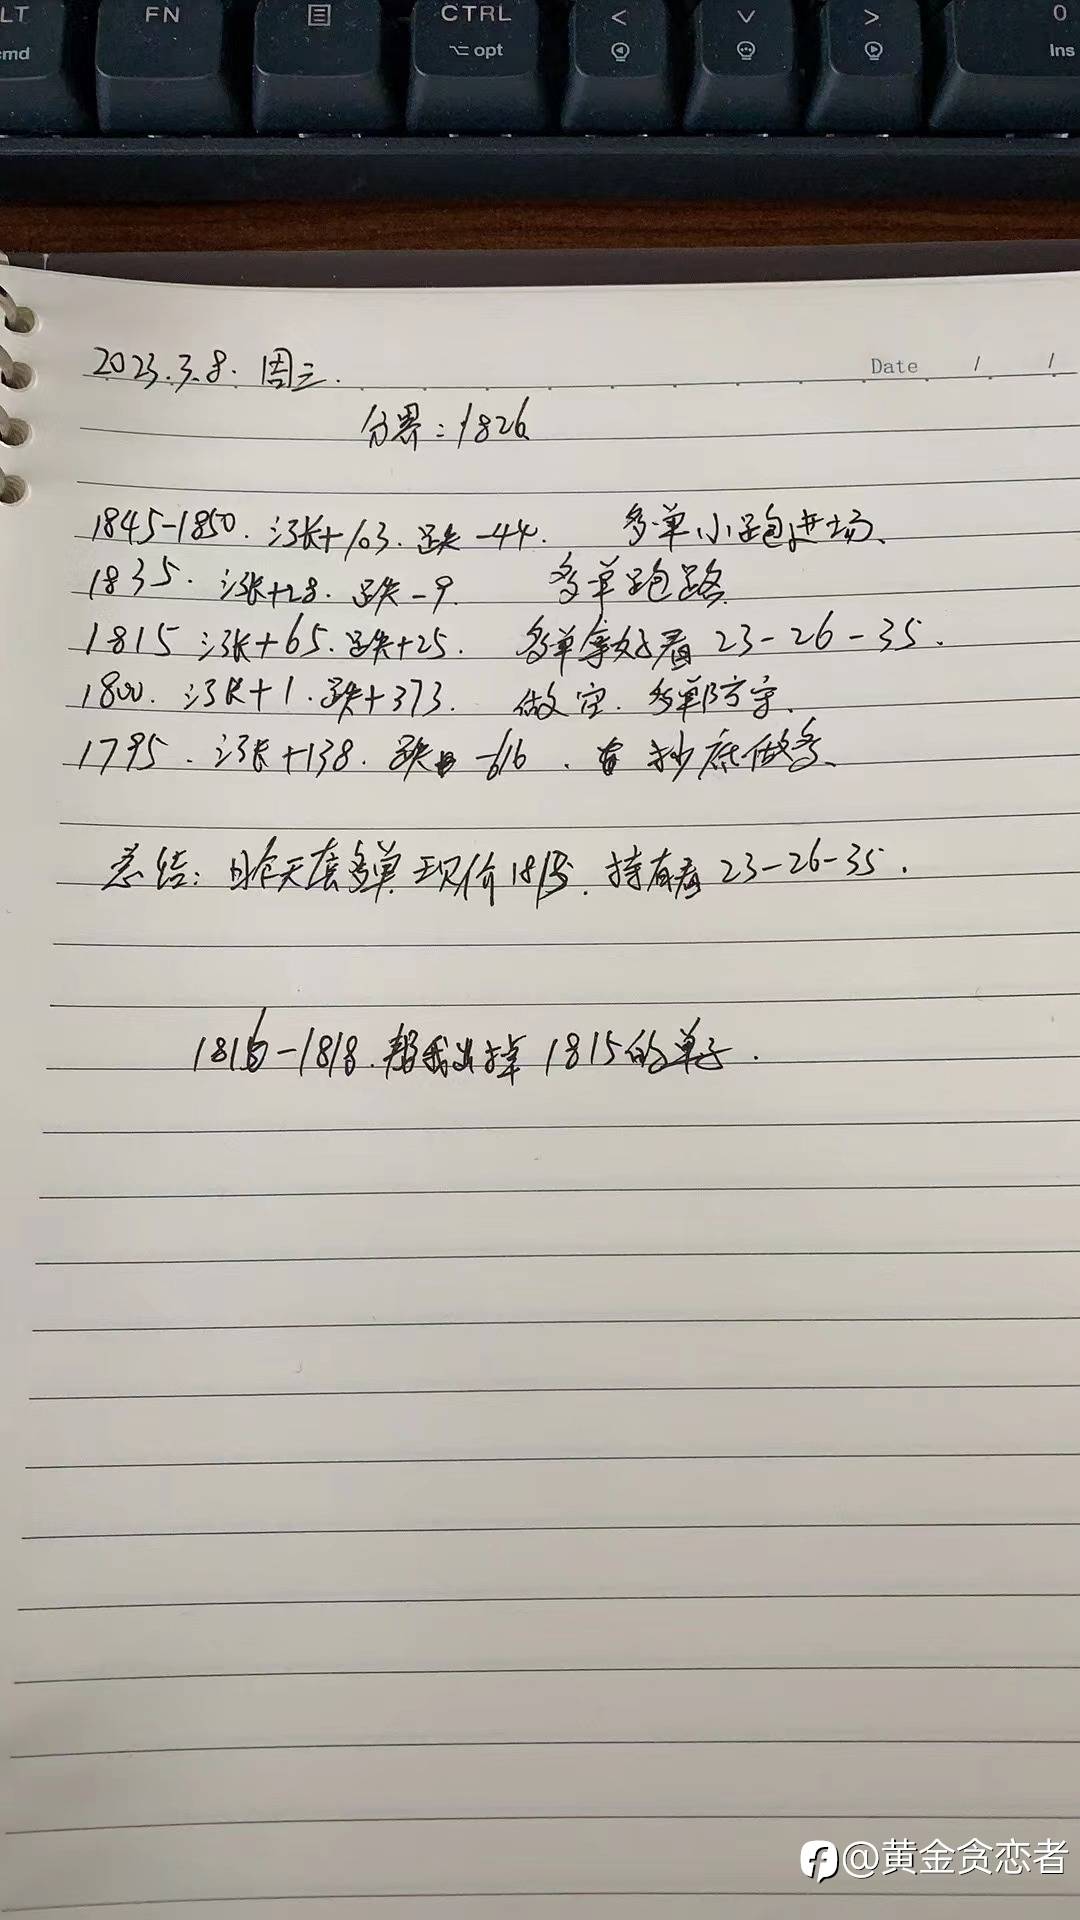 LT
cmd
FN
CTRL
opt
<
∨
>
0
Ins
Date / /
2023.3.8. 周三.
分界:1826
1845-1850. 涨+103. 跌-44. 多单小跑进场、
1835. 涨+28. 跌-9. 多单跑路
1815 涨+65. 跌+25. 多单拿好看 23-26-35.
1800. 涨+1. 跌+373. 做空. 多单防守、
1795. 涨+138. 跌 -616. 抄底做多、
总结: 昨天套多单 现价 1815. 持有看 23-26-35.
1816-1818. 帮我出掉 1815的单子.
@黄金贪恋者